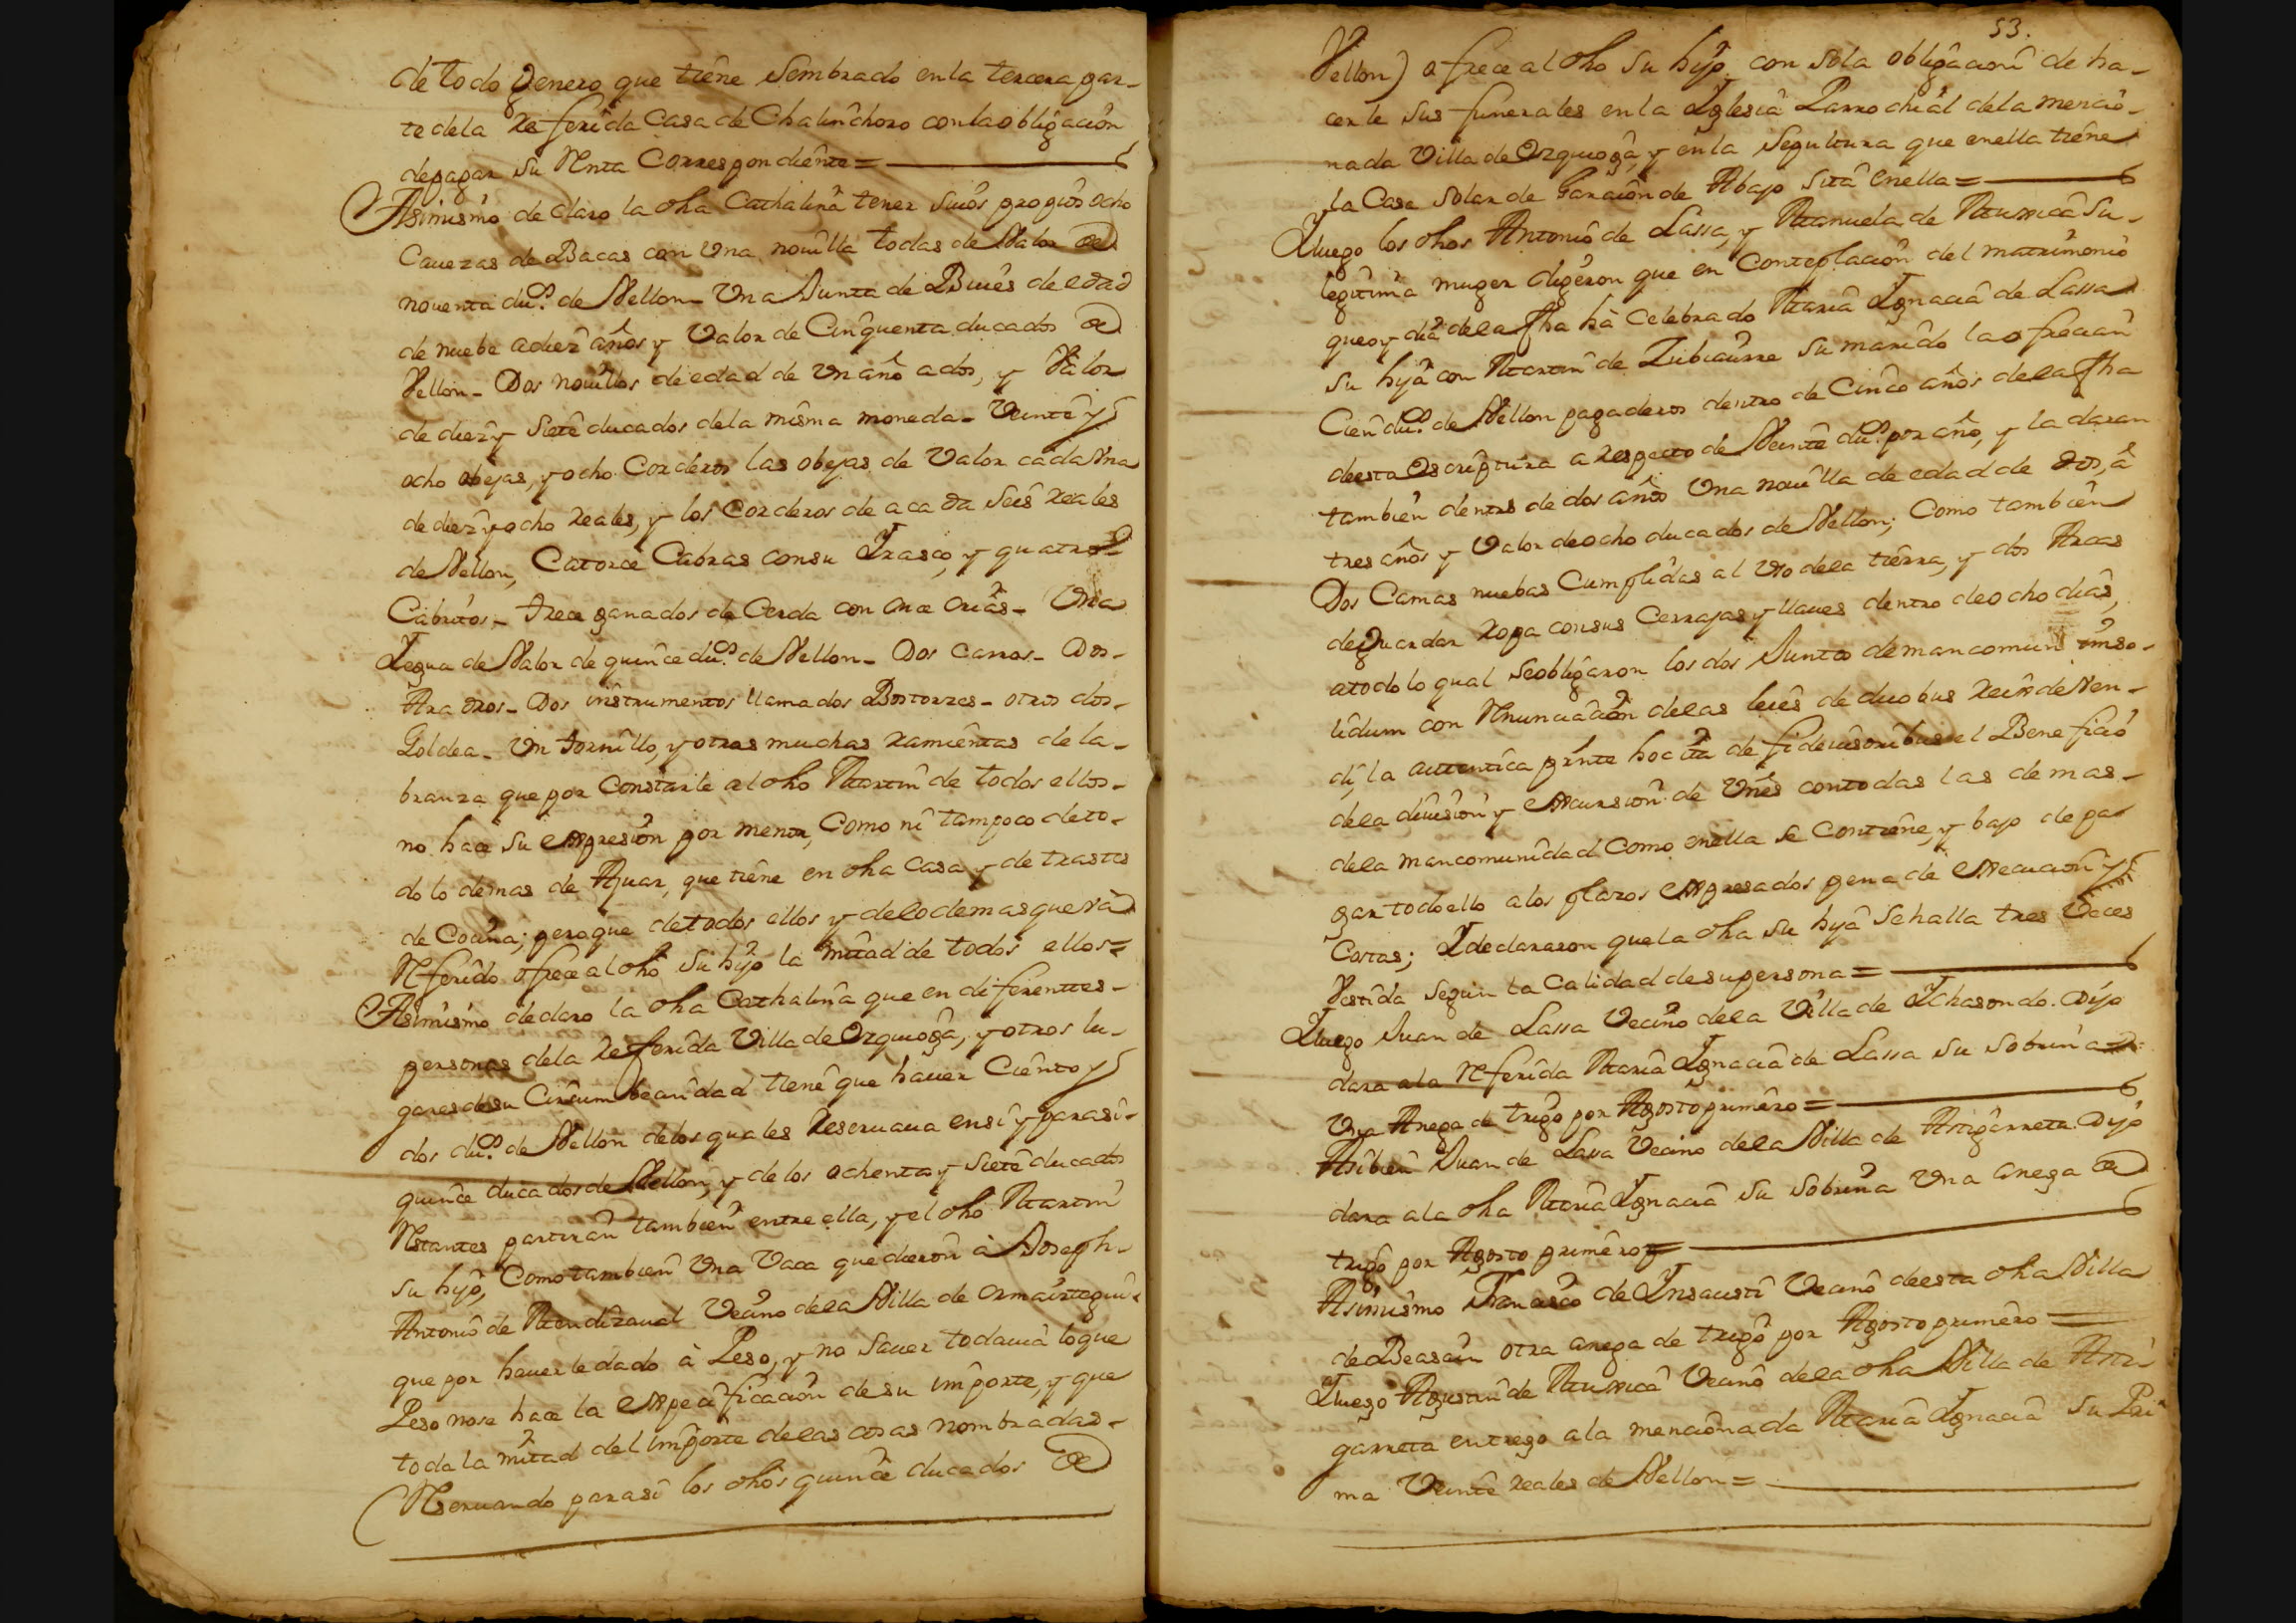 de todo genero que tiene sembrado en la tercera par-
te de la referida Casa de Chalinchoro con la obligacion
de pagar su renta Correspondiente=
Asimismo declaro la dha Cathalina tener suios propios ocho
Cauezas de Bacas con una nouilla todas de Valor de
nouenta du.s de Vellon- Una Junta de Buies de edad
de nuebe a diez años y Valor de Cinquenta ducados de
Vellon- Dos nouillos de edad de un año a dos, y Valor
de diez y siete ducados de la misma moneda- Veinte y
ocho obejas, y ocho Corderos las obejas de Valor cada una
de diez y ocho reales, y los Corderos de a cada seis reales
de Vellon, Catorce Cabras con su Irasco, y quatro
Cabritos- trece ganados de Cerda con once crias- Una
Iegua de Valor de quince du.s de Vellon- Dos carros- Dos-
Arados- Dos instrumentos llamados Bostorzes- otros dos-
Goldea- Un tornillo, y otras muchas ramientas de la-
branza que por Constarle al dho Martin de todos ellos-
no hace su expresion por menor, Como ni tampoco de to-
do lo demas de Ajuar, que tiene en dha Casa y de trastes
de Cocina; pero que de todos ellos y de lo demas que va
referido ofrece al dho su hijo la mitad de todos ellos=
Asimismo declaro la dha Cathalina que en diferenttes-
personas de la referida Villa de Ezquioga, y otros lu-
gares de su Circumbecindad tiene que hauer Ciento y
dos du.s de Vellon de los quales reseruaua en si y para si-
quince ducados de Vellon, y de los ochenta y siete ducados
restantes partiran tambien entre ella, y el dho Martin
su hijo, Como tambien una Vaca que dieron à Joseph-
Antonio de Mendizaual Vecino de la Villa de Ormaiztegui-
que por hauerle dado à Peso, y no sauer todauia lo que
Peso no se hace la expecificacion de su importe, y que
toda la mitad del importe de las cosas nombradas-
reseruando para si los dhos quince ducados de
53.
Vellon) ofrece al dho su hijo con sola obligacion de ha-
cerle sus funerales en la Iglesia Parrochial de la mencio-
nada Villa de Ezquioga, y en la Sepultura que en ella tiene
la Casa Solar de Garacion de Abajo sita en ella=
I luego los dhos Antonio de Lassa, y Manuela de Muxica su-
legitima muger digeron que en Conteplacion del matrimonio
que oy dia de la fha hà celebrado Maria Ignacia de Lassa
su hija con Martin de Zubiaurre su marido la ofrecian
Cien du.s de Vellon pagaderos dentro de Cinco años de la fha
de esta escriptura a respecto de Veinte du.s por año, y la daran
tambien dentro de dos años una nouilla de edad de dos, à
tres años y Valor de ocho ducados de Vellon; Como tambien
Dos Camas nuebas Cumplidas al uso de la tierra, y dos Arcas
de guardar ropa con sus Cerrajas y llaues dentro de ocho dias,
a todo lo qual se obligaron los dos Junttos de mancomun inso-
lidum con renunciacion de las leies de duobus reis deVen-
di, la autentica pnte hoc ita de fideiusoribus el Beneficio
de la diuision y excursion de Vnes con todas las demas-
de la mancomunidad Como en ella se Contiene, y bajo de pa-
gar todo ello a los plazos expresados pena de execucion y
Costas; I declararon que la dha su hija se halla tres Veces
Vestida segun la Calidad de su persona=
I luego Juan de Lassa Vecino de la Villa de Ichasondo. Dijo
dara a la referida Maria Ignacia de Lassa su sobrina
Una Anega de trigo por Agosto primero=
Asibien Juan de Lassa Vecino de la Villa de Astigarreta. Dijo
dara a la dha Maria Ignacia su sobrina una anega de
trigo por Agosto primero=
Asimismo Francisco de Insausti Vecino de esta dha Villa
de Beasain otra anega de trigo por Agosto primero=
I luego Agustin de Muxica Vecino de la dha Villa de Asti-
garreta entrego a la mencionada Maria Ignacia su Pri-
ma Veinte reales de Vellon=